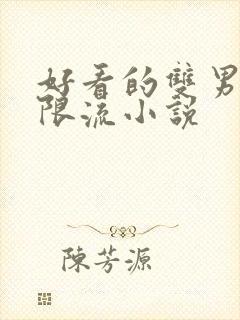 好看的雙男
限流小說
陳芳源